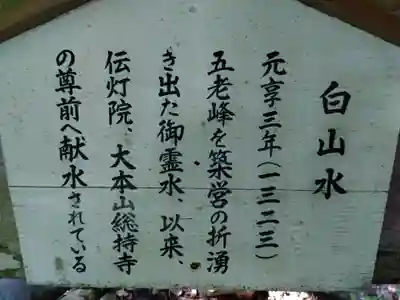 白山水
元享三年(一三二三)
五老峰を築営の折湧
き出た御霊水、以来、
伝灯院、大本山総持寺
の尊前へ献水されている